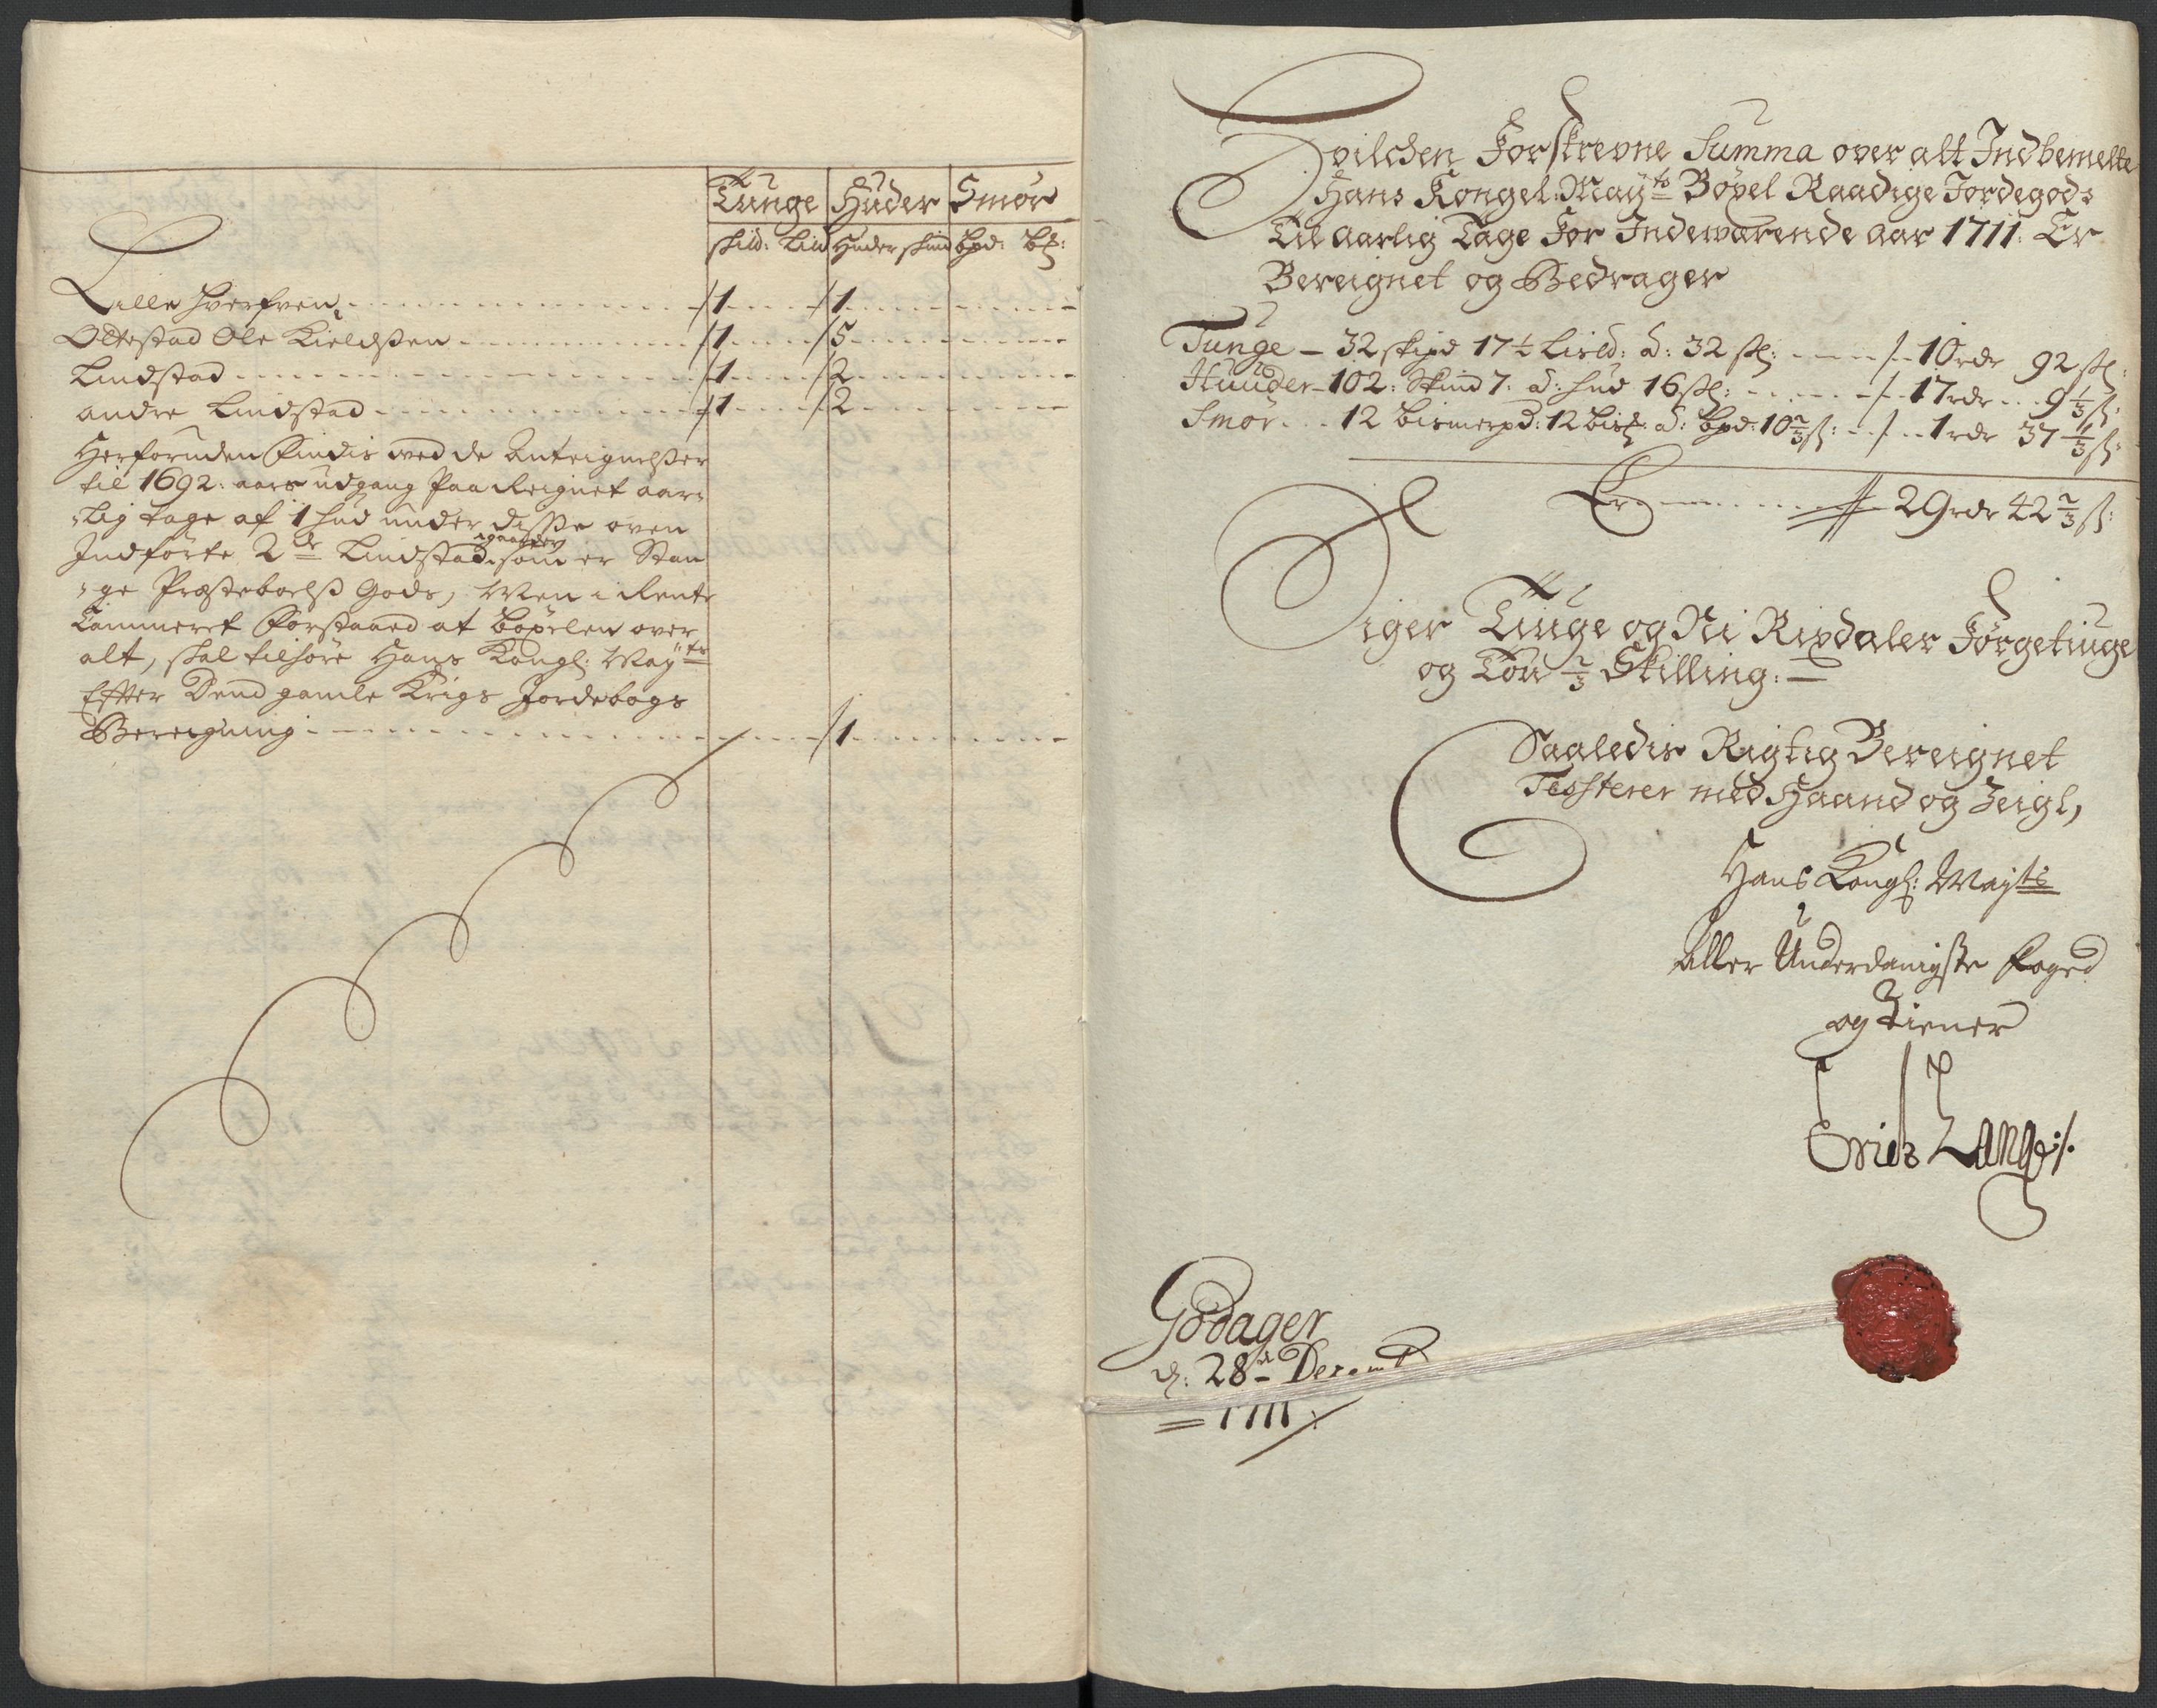 Tunge Huder Smör
skild: Lild Huder skind bpd: b℔:
Lille Hverfven /1 /1
Oltestad Ole Kieldßen /1 /5
Lindstad /1 /2
andre Lindstad /1 /2
Herforuden Findis ved de Anteignelßer
til 1692: aars udgang Paa Reignet aar-
lig tage af 1 hud under diße oven
Indförte 2de Lindstad gaarder som er Stan
ge Præsteboelß Gods, Men i Rente
Cammeret Forstaaed at böxelen over
alt, skal tilhöre Hans Kongl: Mayts
Efter Dend gamle Krigs Jordebogs
Bereigning /1
Hvilchen Forskrevne Summa over alt Indbemelte
Hans Kongel: Mayts Böxel Raadige Jordegods
Til Aarlig Tage For Indeværende Aar 1711: Er
Bereignet og Bedrager
Tunge - 32 skipd 17½ Lisld: a: 32 sk: /- 10 rdr 92 sk:
Huuder - 102: Skind 7: a: Hud 16 sk: /- 17 rdr 9⅓ sk:
Smör 12 bismerpd: 12 bis℔: a: bpd: 10⅔ sk: /- 1 rdr 37⅓ sk:
Er 29 rdr 42⅔ sk:
Siger Tiuge og Ni Rixdaler Förgetiuge
og Tou ⅔ Skilling:
Saaledis Rigtig Bereignet
Testerer med Haand og Zeigl,
Hans Kongl: Mayts
Aller Underdanigste Foged
og Tiener
Erich Lange
Godager
d: 28de Decemb
1711